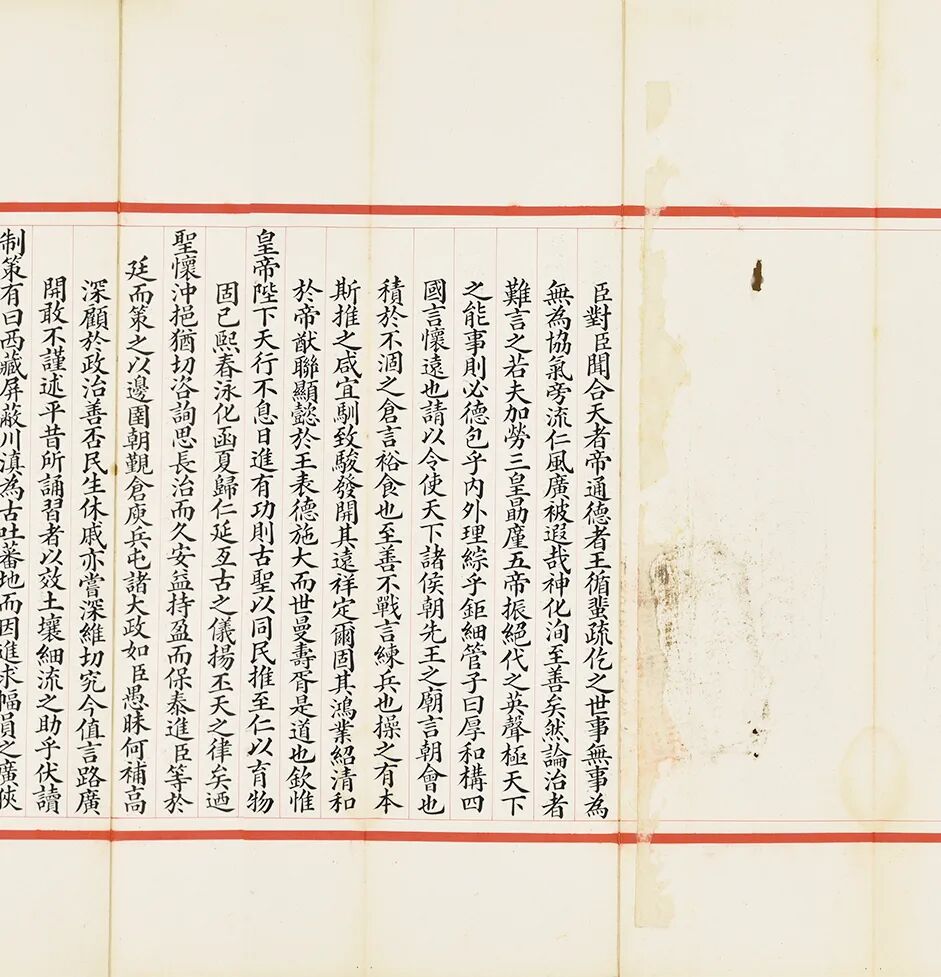 臣對臣聞合天者帝通德者王循蜚疏仡之世事無事為
無為協氣旁流仁風廣被遐哉神化洵至善矣然論治者
難言之若夫加勞三皇勗廑五帝振絕代之英聲極天下
之能事則必德包乎內外理綜乎鉅細管子曰厚和構四
國言懷遠也請以令使天下諸侯朝先王之廟言朝會也
積於不涸之倉言裕食也至善不戰言練兵也操之有本
斯推之咸宜馴致駿發開其遠祥定爾固其鴻業紹清和
於帝猷聯顯懿於王表德施大而世曼壽胥是道也欽惟
皇帝陛下天行不息日進有功則古聖以同民推至仁以育物
固已熙春泳化函夏歸仁延亙古之儀揚丕天之律矣迺
聖懷沖挹猶切咨詢思長治而久安益持盈而保泰進臣等於
廷而策之以邊圉朝覲倉庾兵屯諸大政如臣愚昧何補高
深顧於政治善否民生休戚亦嘗深維切究今值言路廣
開敢不謹述平昔所誦習者以效土壤細流之助乎伏讀
制策有曰西藏屏蔽川滇為古吐蕃地而因進求幅員之廣狹